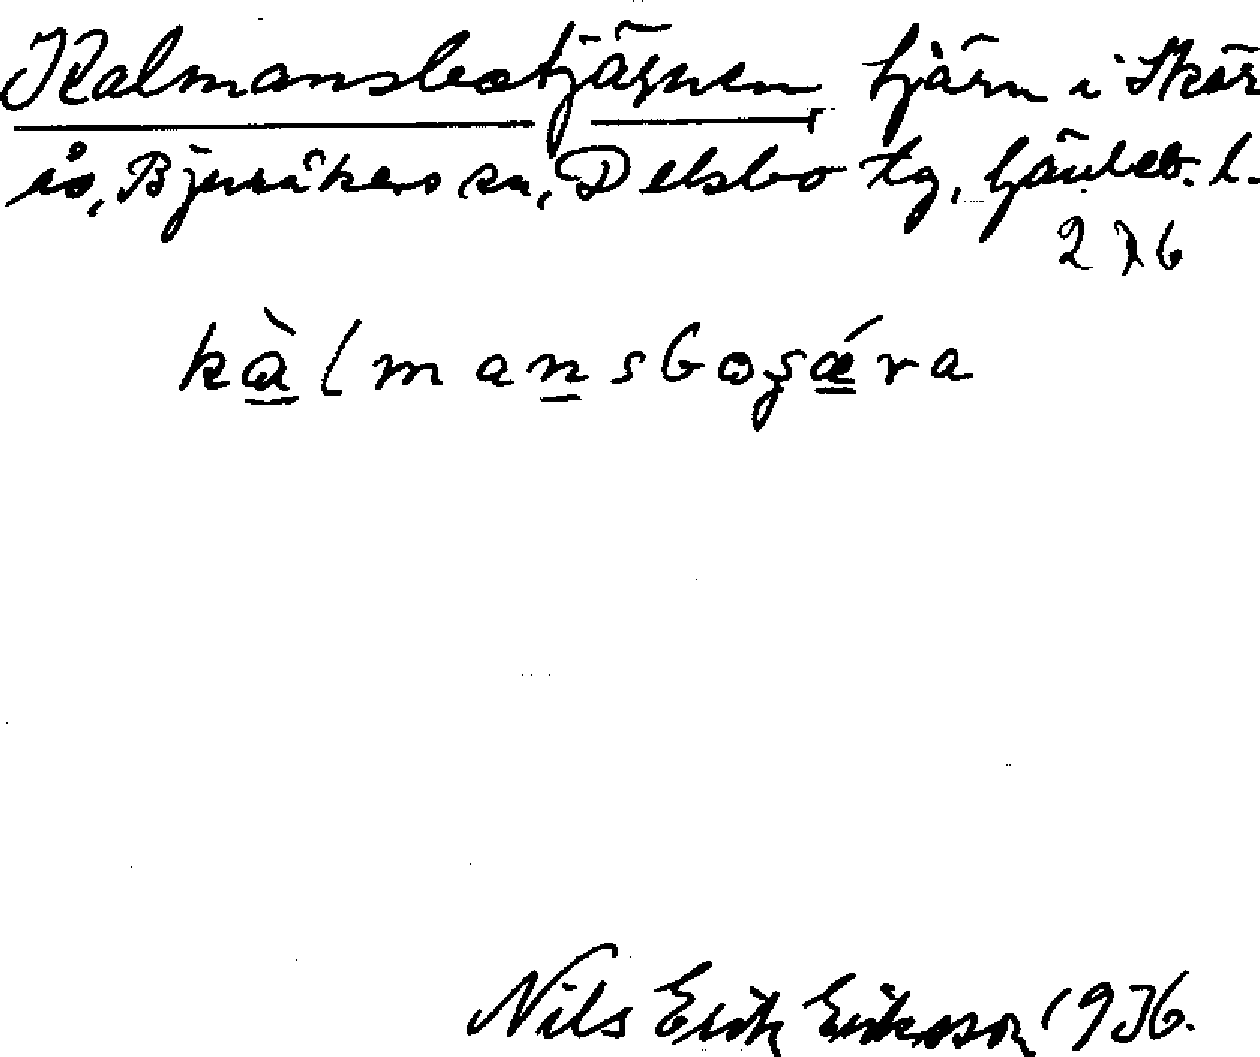 Kalmansbotjärnen, tjärn i Skår
ås, Bjuråkers sn, Delsbo tg, Gävleb. l.
276
kàlmansboʂǽra
Nils Erik Eriksson 1936.